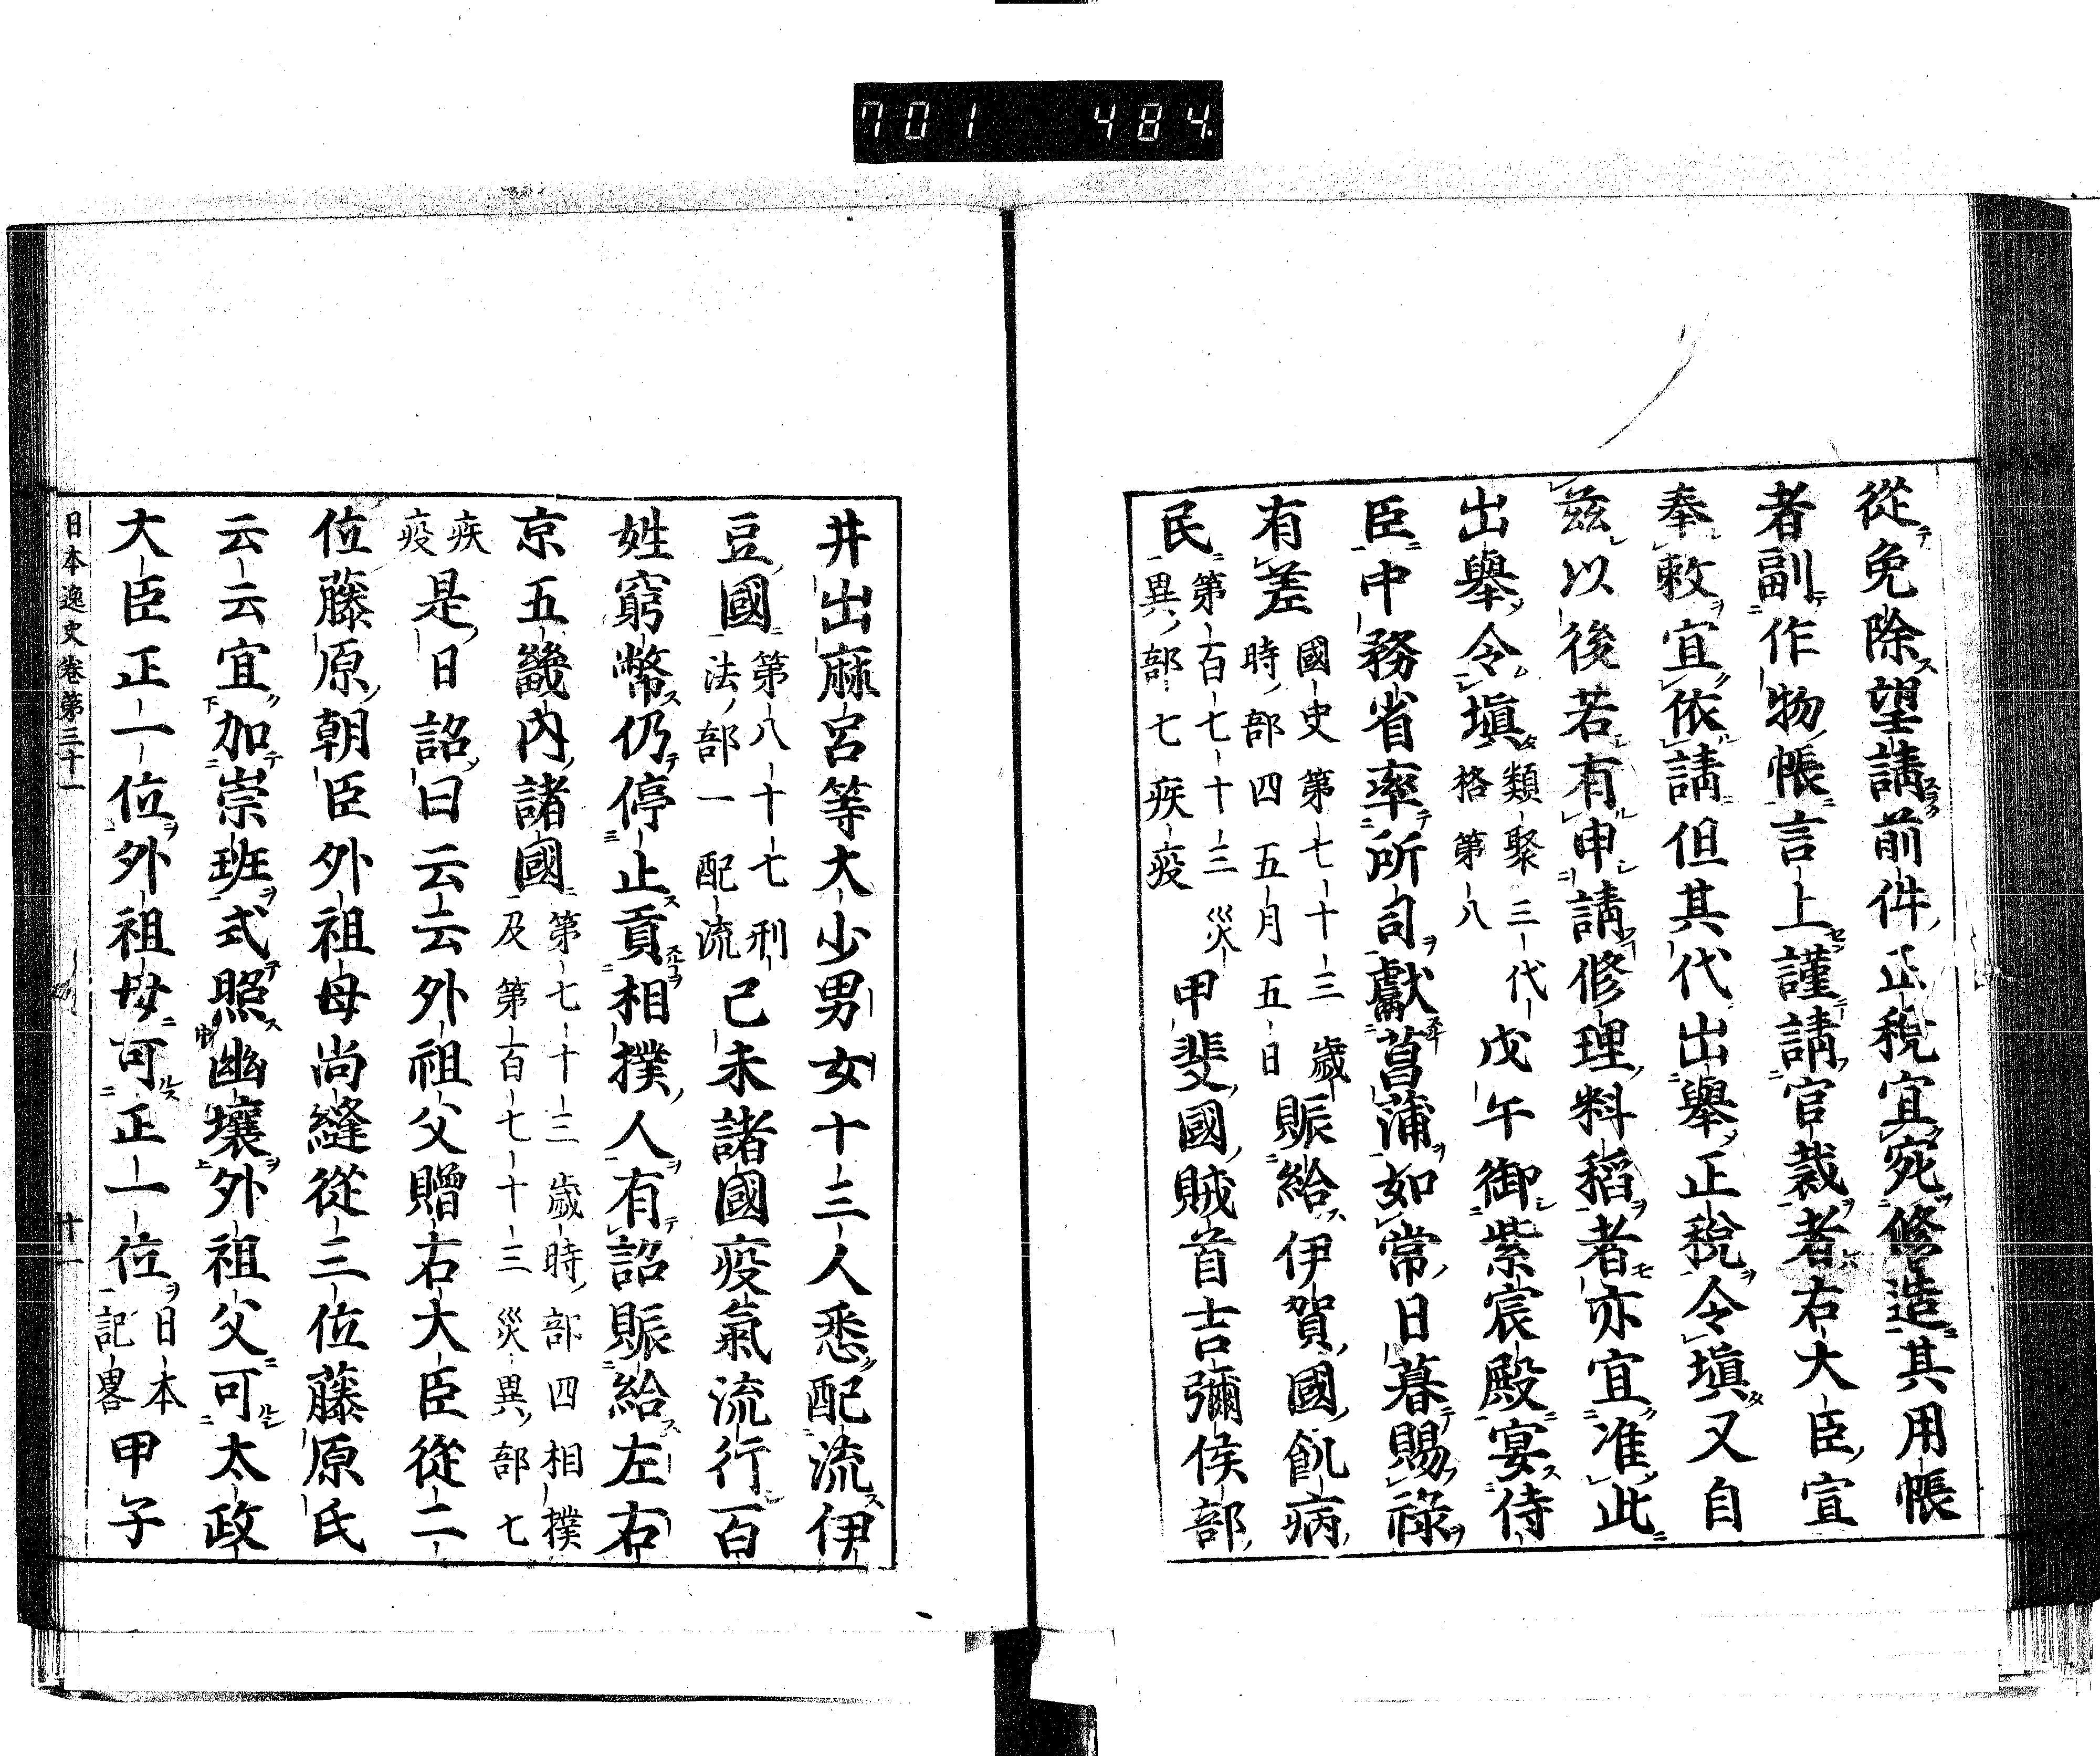 701 484.
從免除望請前件正稅宜宛修造其用帳
者副作物帳言上謹請官裁者右大臣宣
奉敕宜依請但其代出舉正稅令塡又自
茲以後若有申請修理料稻者亦宜准此
出舉令塡類聚三代格第八戊午御紫宸殿宴侍
臣中務省率所司獻菖蒲如常日暮賜祿
有差國史第七十三歲時部四五月五日賑給伊賀國飢病
民第百七十三災異部七疾疫甲斐國賊首吉彌侯部
井出麻呂等大少男女十三人悉配流伊
豆國第八十七刑法部一配流己未諸國疫氣流行百
姓窮弊仍停止貢相撲人有詔賑給左右
京五畿內諸國第七十三歲時部四相撲及第百七十三災異部七
疾疫是日詔曰云云外祖父贈右大臣從二
位藤原朝臣外祖母尚縫從三位藤原氏
云云宜加崇班式照幽壤外祖父可太政
大臣正一位外祖母可正一位日本記畧甲子
日本逸史卷第三十一 十一